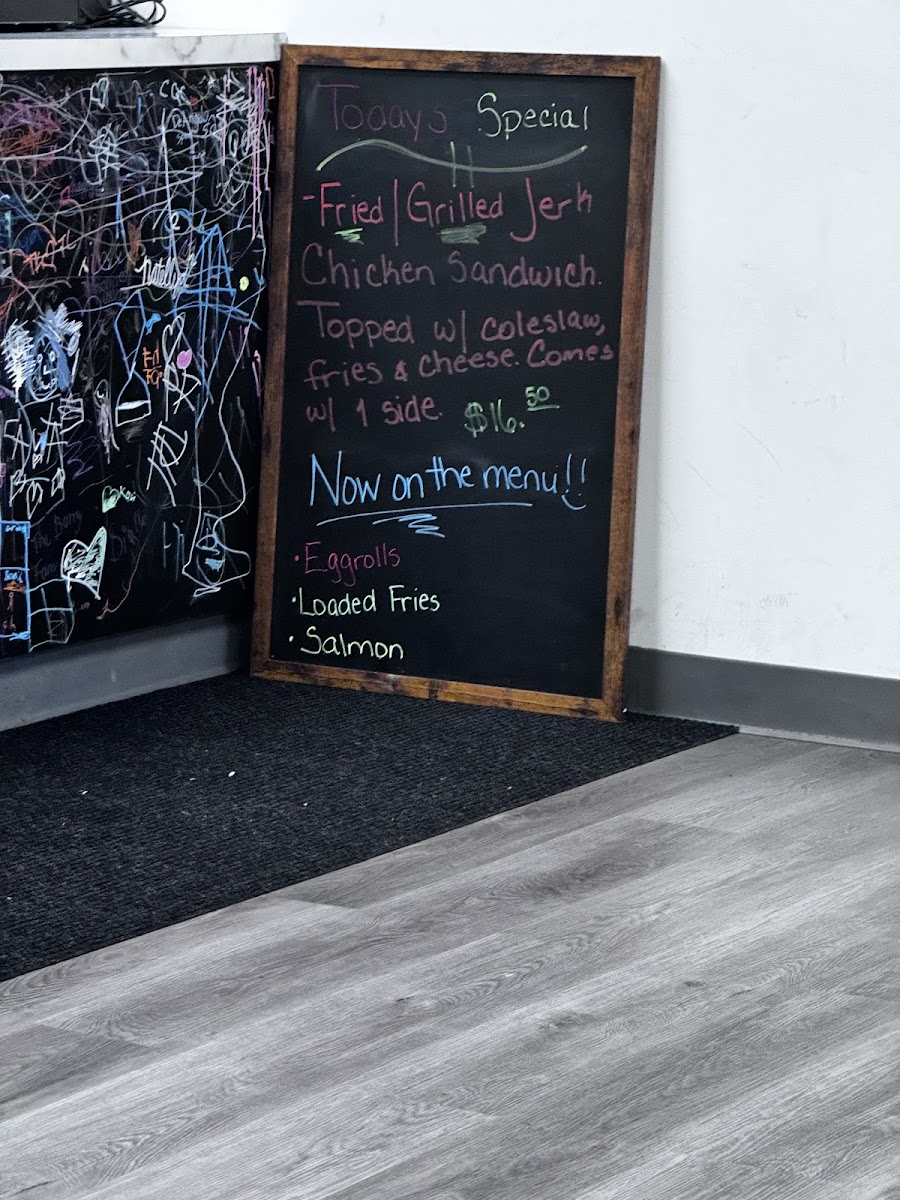 Todays Special
-Fried/Grilled Jerk
Chicken Sandwich.
Topped w/ coleslaw,
fries & cheese. Comes
w/ 1 side. $16.50
Now on the menu!!
• Eggrolls
• Loaded Fries
• Salmon